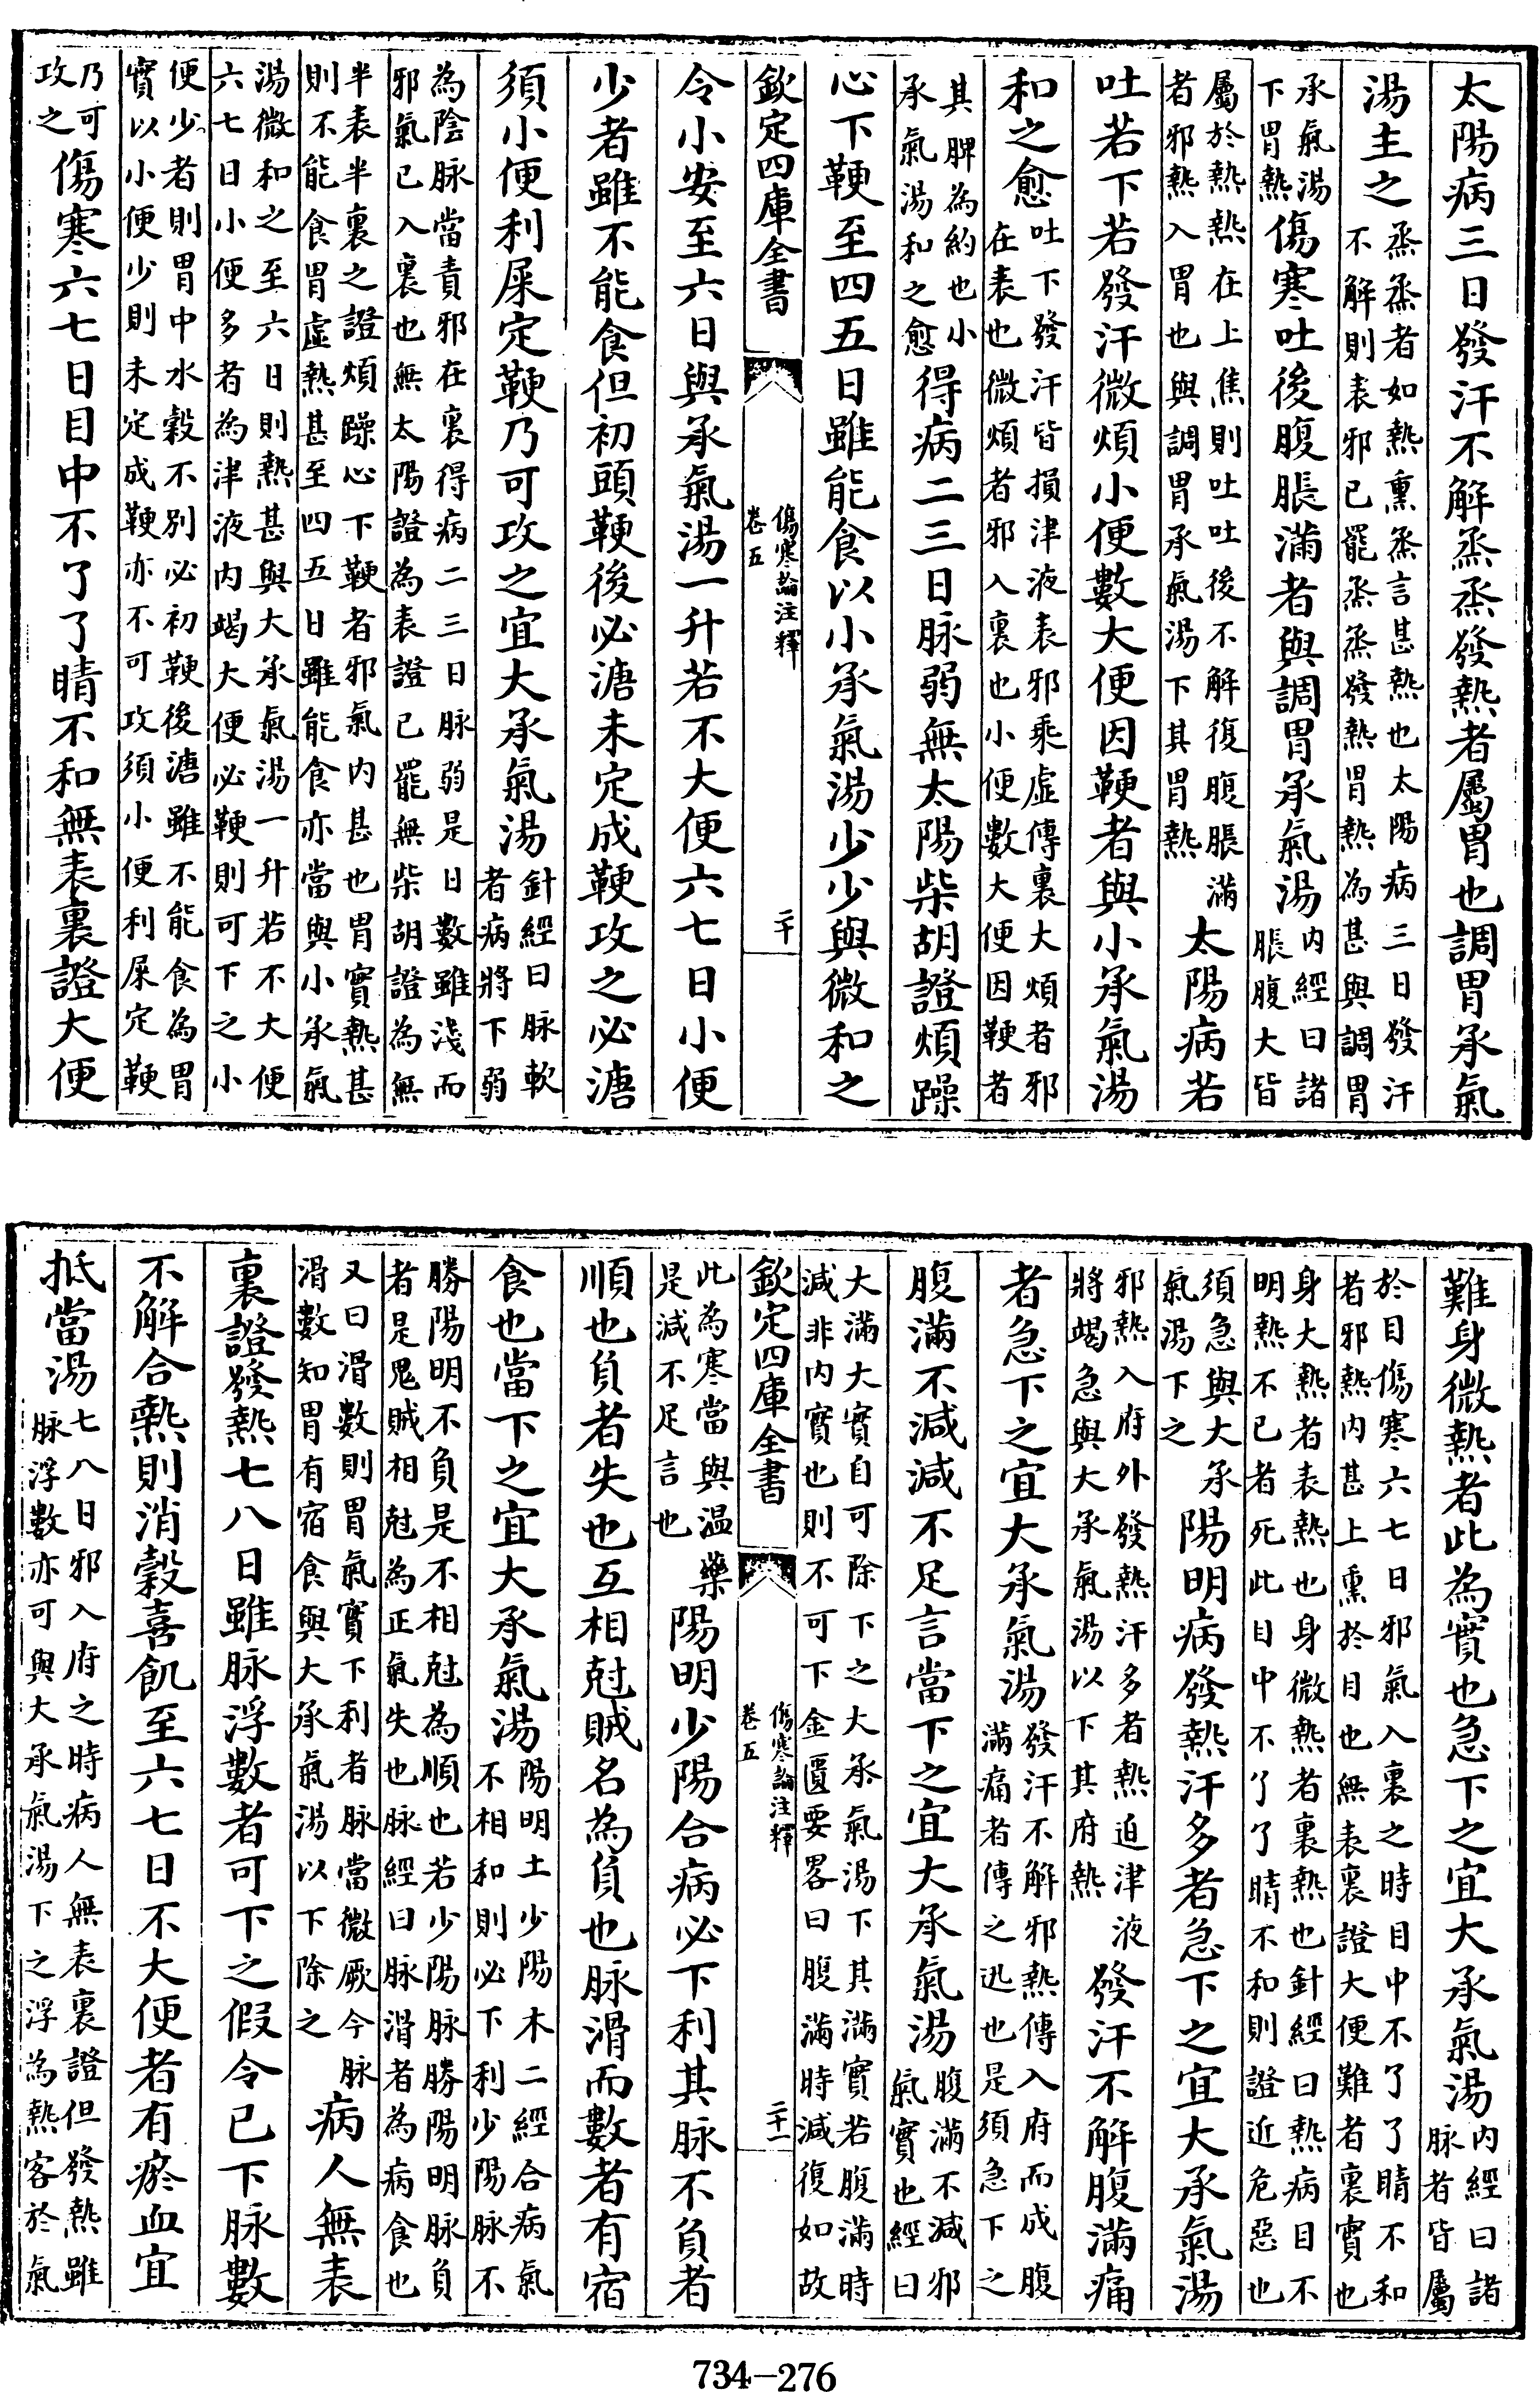 太陽病三日發汗不解蒸蒸發熱者屬胃也調胃承氣
湯主之蒸蒸者如熱熏蒸言甚熱也太陽病三日發汗不解則表邪已罷蒸蒸發熱胃熱為甚與調胃
承氣湯下胃熱傷寒吐後腹脹滿者與調胃承氣湯內經曰諸脹腹大皆
屬於熱熱在上焦則吐吐後不解復腹脹滿者邪熱入胃也與調胃承氣湯下其胃熱太陽病若
吐若下若發汗微煩小便數大便因鞕者與小承氣湯
和之愈吐下發汗皆損津液表邪乘虛傳裏大煩者邪在表也微煩者邪入裏也小便數大便因鞕者
其脾為約也小承氣湯和之愈得病二三日脉弱無太陽柴胡證煩躁
心下鞕至四五日雖能食以小承氣湯少少與微和之
欽定四庫全書
傷寒論注釋
卷五
二十
令小安至六日與承氣湯一升若不大便六七日小便
少者雖不能食但初頭鞕後必溏未定成鞕攻之必溏
須小便利屎定鞕乃可攻之宜大承氣湯針經曰脉軟者病將下弱
為陰脉當責邪在裏得病二三日脉弱是日數雖淺而邪氣已入裏也無太陽證為表證已罷無柴胡證為無
半表半裏之證煩躁心下鞕者邪氣內甚也胃實熱甚則不能食胃虛熱甚至四五日雖能食亦當與小承氣
湯微和之至六日則熱甚與大承氣湯一升若不大便六七日小便多者為津液內竭大便必鞕則可下之小
便少者則胃中水穀不別必初鞕後溏雖不能食為胃實以小便少則未定成鞕亦不可攻須小便利屎定鞕
乃可攻之傷寒六七日目中不了了睛不和無表裏證大便
難身微熱者此為實也急下之宜大承氣湯內經曰諸脉者皆屬
於目傷寒六七日邪氣入裏之時目中不了了睛不和者邪熱內甚上熏於目也無表裏證大便難者裏實也
身大熱者表熱也身微熱者裏熱也針經曰熱病目不明熱不已者死此目中不了了睛不和則證近危惡也
須急與大承氣湯下之陽明病發熱汗多者急下之宜大承氣湯
邪熱入府外發熱汗多者熱迫津液將竭急與大承氣湯以下其府熱發汗不解腹滿痛
者急下之宜大承氣湯發汗不解邪熱傳入府而成腹滿痛者傳之迅也是須急下之
腹滿不減減不足言當下之宜大承氣湯腹滿不減邪氣實也經曰
大滿大實自可除下之大承氣湯下其滿實若腹滿時減非內實也則不可下金匱要畧曰腹滿時減復如故
欽定四庫全書
傷寒論注釋
卷五
二十一
此為寒當與温藥是減不足言也陽明少陽合病必下利其脉不負者
順也負者失也互相尅賊名為負也脉滑而數者有宿
食也當下之宜大承氣湯陽明土少陽木二經合病氣不相和則必下利少陽脉不
勝陽明不負是不相尅為順也若少陽脉勝陽明脉負者是鬼賊相尅為正氣失也脉經曰脉滑者為病食也
又曰滑數則胃氣實下利者脉當微厥今脉滑數知胃有宿食與大承氣湯以下除之病人無表
裏證發熱七八日雖脉浮數者可下之假令已下脉數
不解合熱則消穀喜飢至六七日不大便者有瘀血宜
抵當湯七八日邪入府之時病人無表裏證但發熱雖脉浮數亦可與大承氣湯下之浮為熱客於氣
734-276